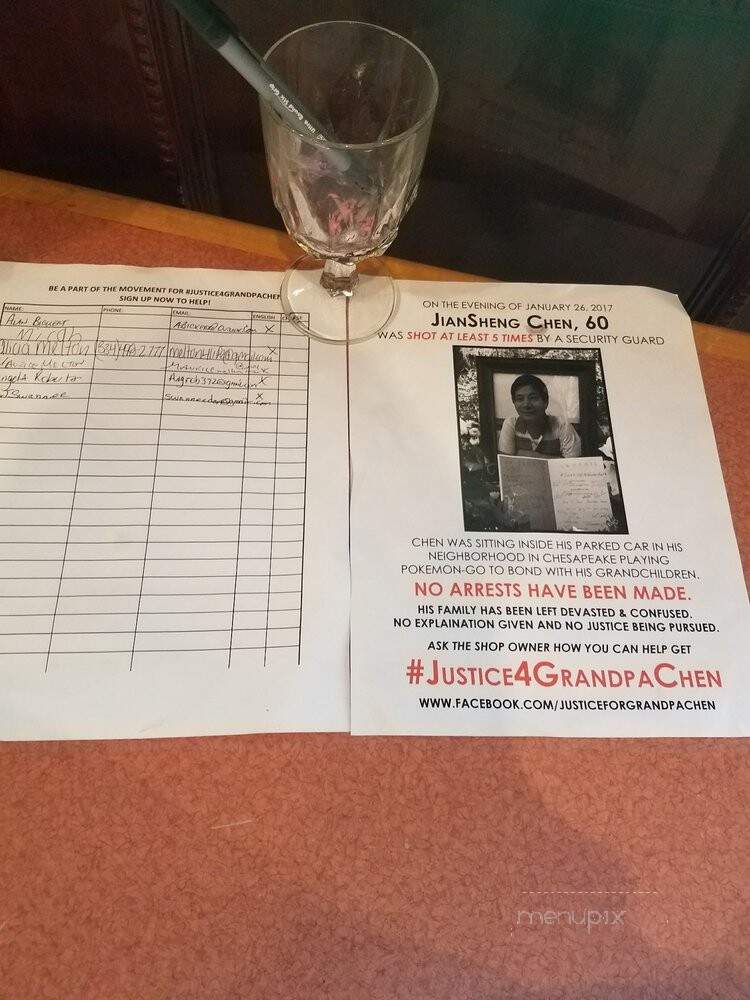 BE A PART OF THE MOVEMENT FOR #JUSTICE4GRANDPACHEN
SIGN UP NOW TO HELP!
NAME: PHONE: EMAIL: ENGLISH
Alan
Alicia Melton
Angela Roberts
Swanner
ON THE EVENING OF JANUARY 26, 2017
JIANSHENG CHEN, 60
WAS SHOT AT LEAST 5 TIMES BY A SECURITY GUARD
CHEN WAS SITTING INSIDE HIS PARKED CAR IN HIS
NEIGHBORHOOD IN CHESAPEAKE PLAYING
POKEMON-GO TO BOND WITH HIS GRANDCHILDREN.
NO ARRESTS HAVE BEEN MADE.
HIS FAMILY HAS BEEN LEFT DEVASTED & CONFUSED.
NO EXPLAINATION GIVEN AND NO JUSTICE BEING PURSUED.
ASK THE SHOP OWNER HOW YOU CAN HELP GET
#JUSTICE4GRANDPACHEN
WWW.FACEBOOK.COM/JUSTICEFORGRANDPACHEN
menupix